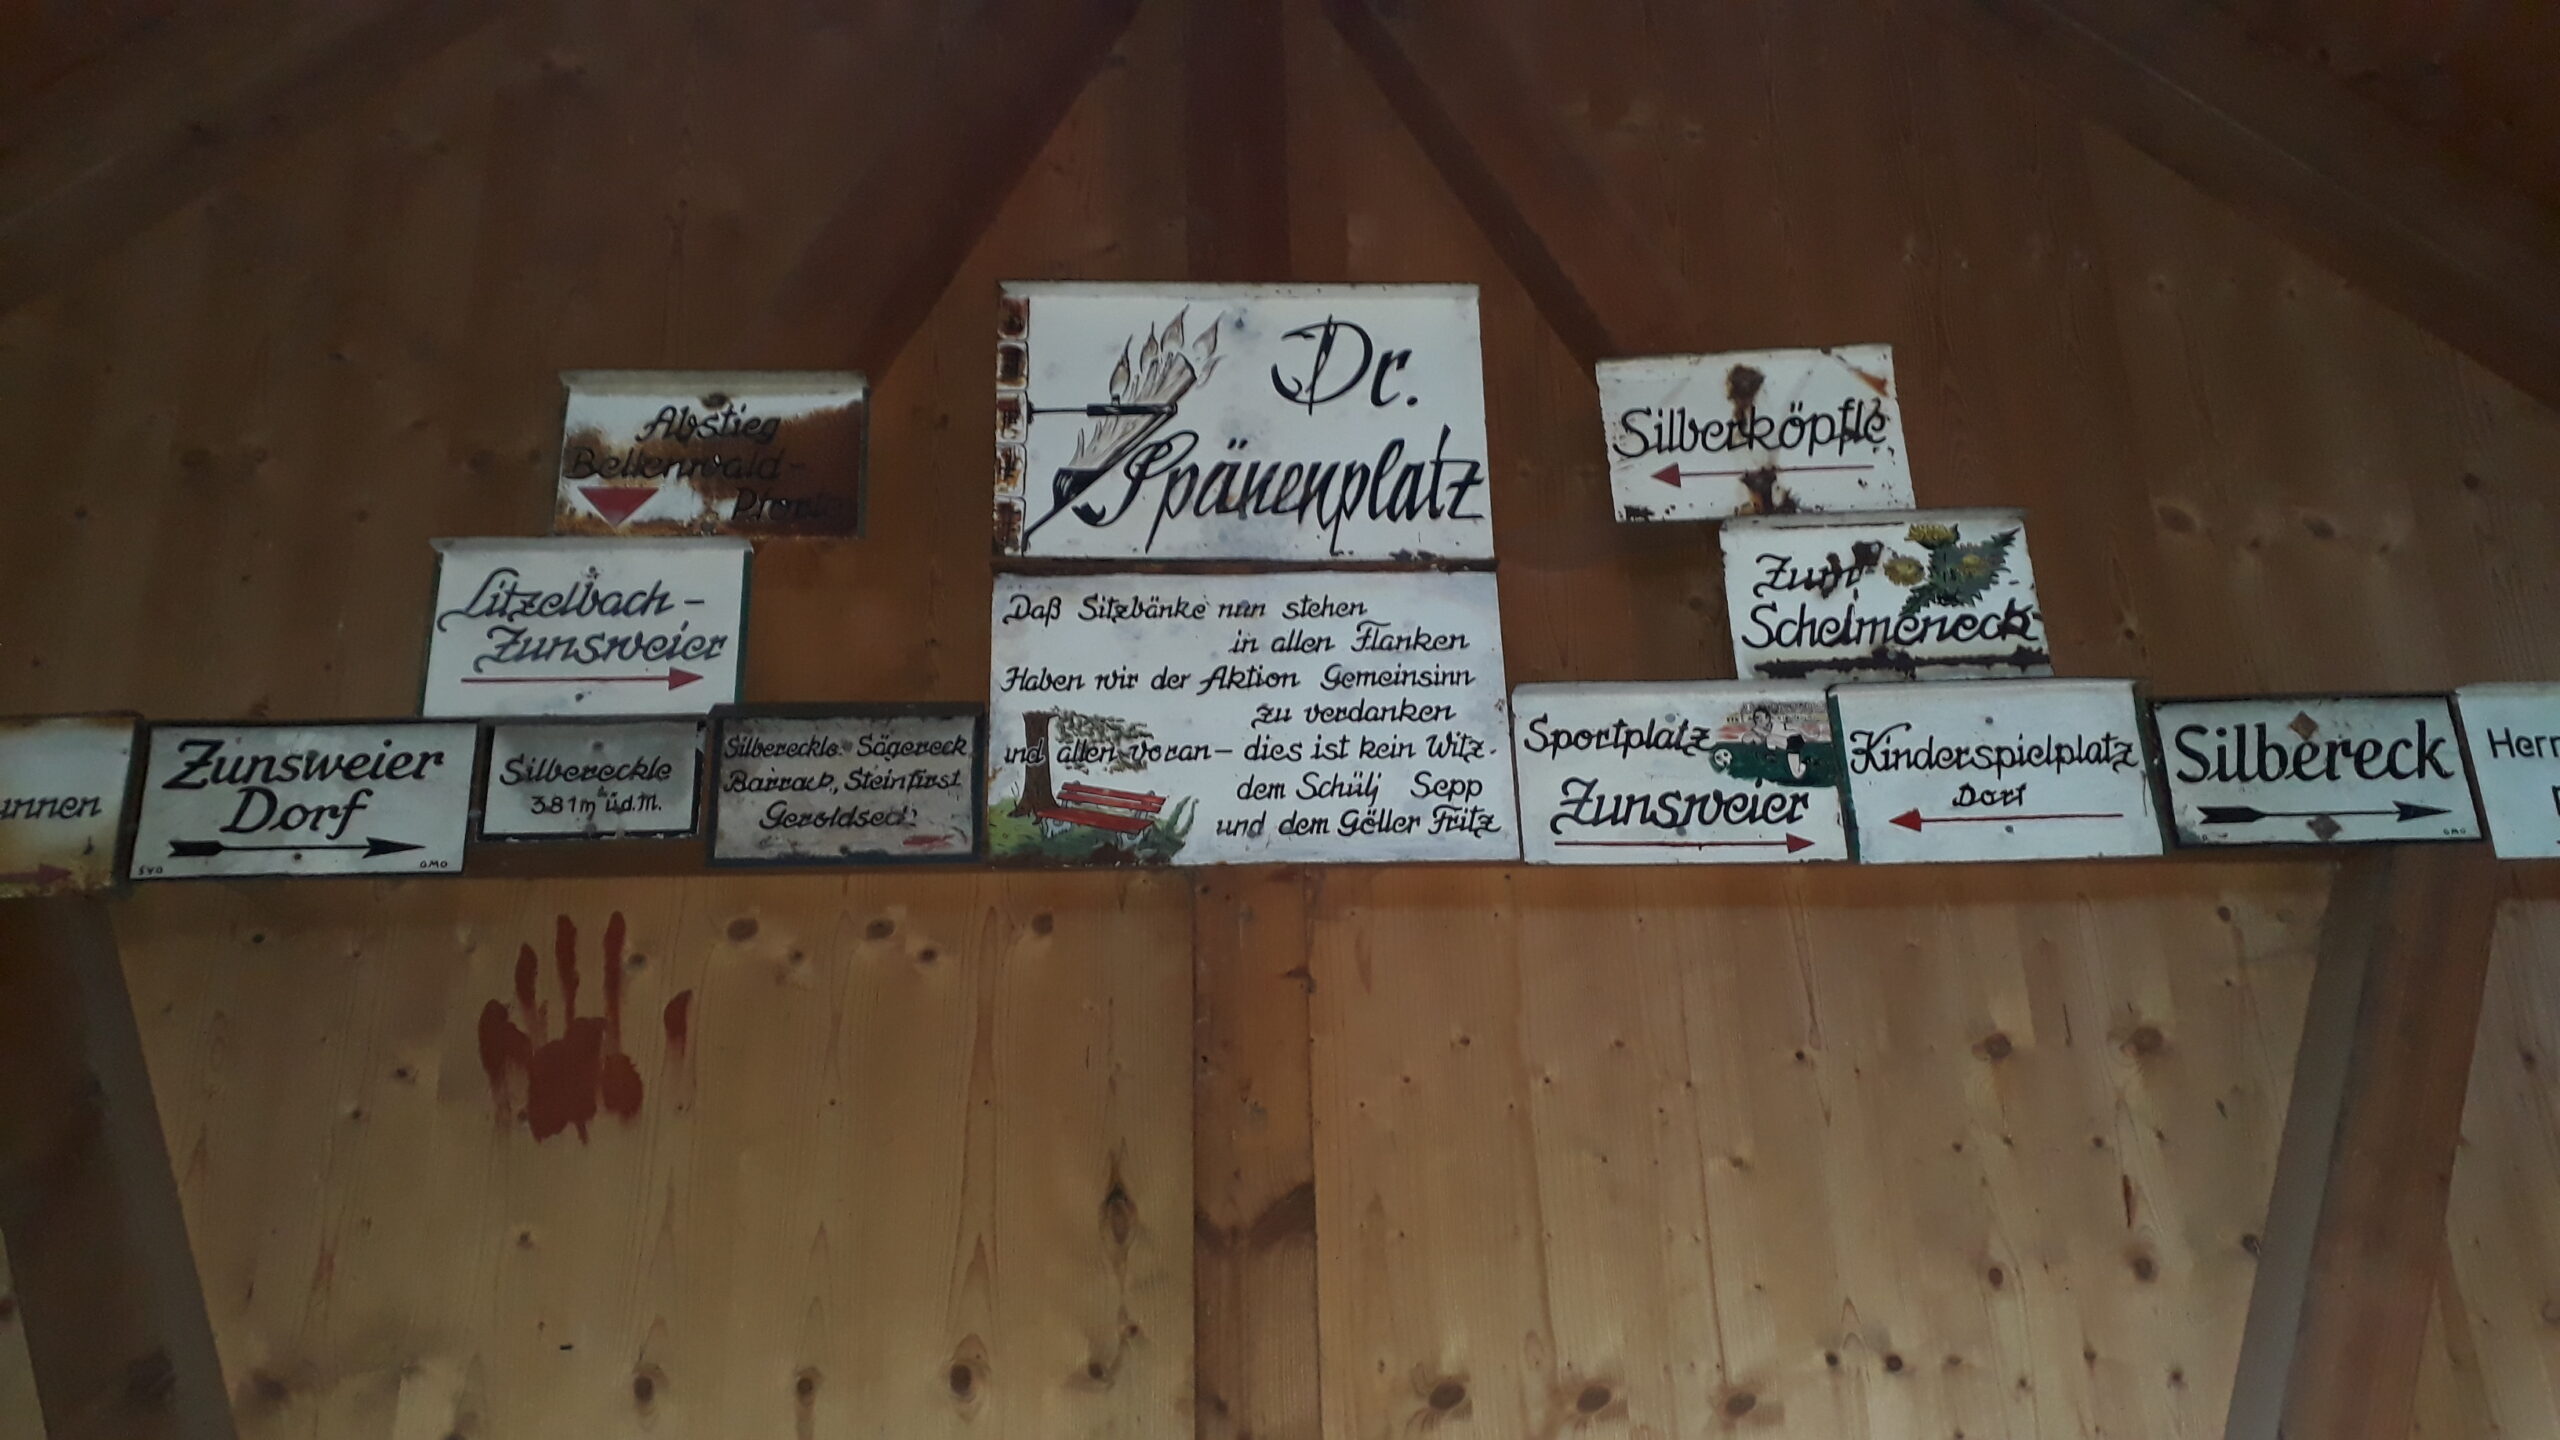 Dr.
Spänenplatz
Daß Sitzbänke nun stehen
in allen Flanken
Haben wir der Aktion Gemeinsinn
zu verdanken
und allen voran – dies ist kein Witz.
dem Schülj Sepp
und dem Göller Fritz
Abstieg
Bellenwald-
Litzelbach-
Zunsweier
Zunsweier
Dorf
SVO OMO
Silbereckle
381m ü.d.M.
Silbereckle. Sägereck
Barrack, Steinfirst
Geroldseck
Silberköpfle
Zum
Schelmeneck
Sportplatz
Zunsweier
Kinderspielplatz
Dorf
Silbereck
OMO